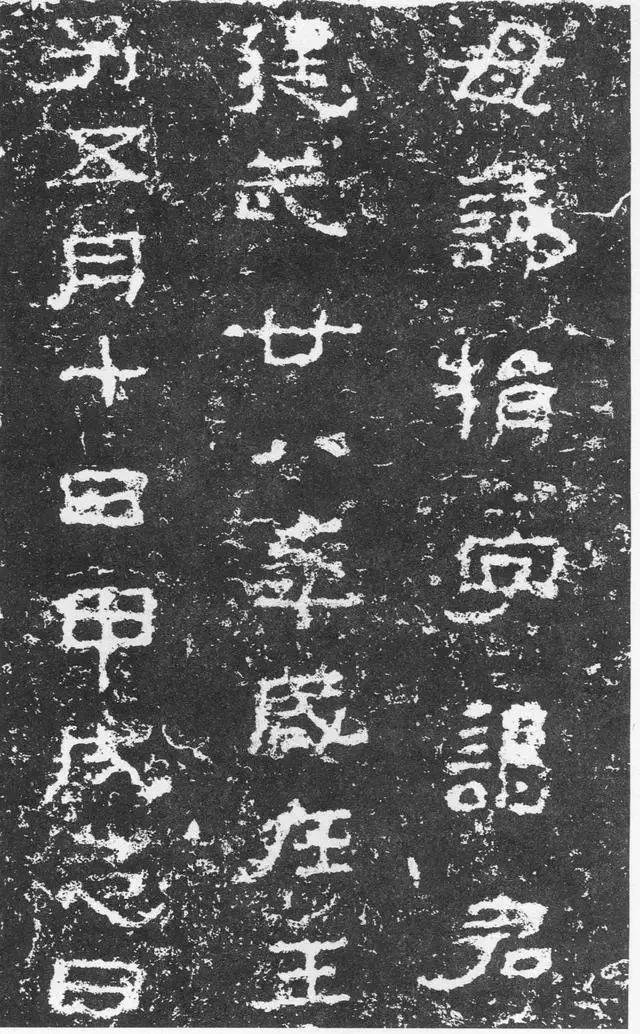 母諱捐字謁君
建武廿八年歲在壬
子五月十日甲戌忌日